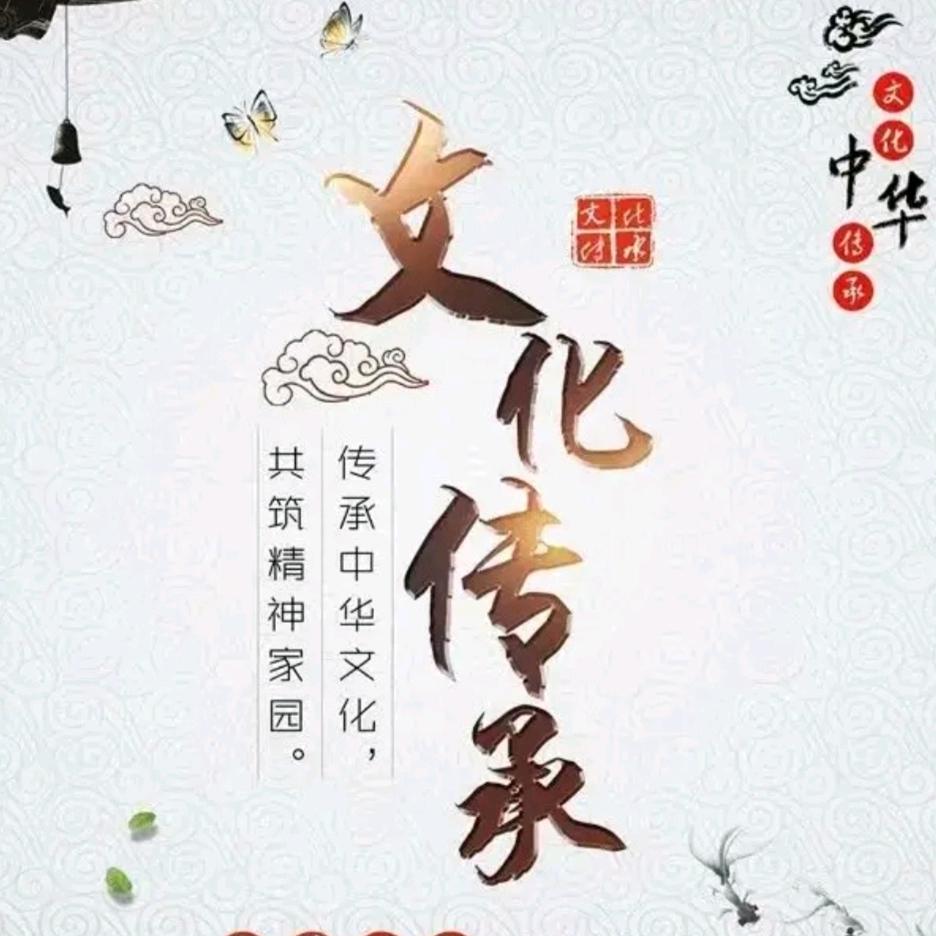 文化传承
传承中华文化，
共筑精神家园。
文化
传承
中华
文化
传承